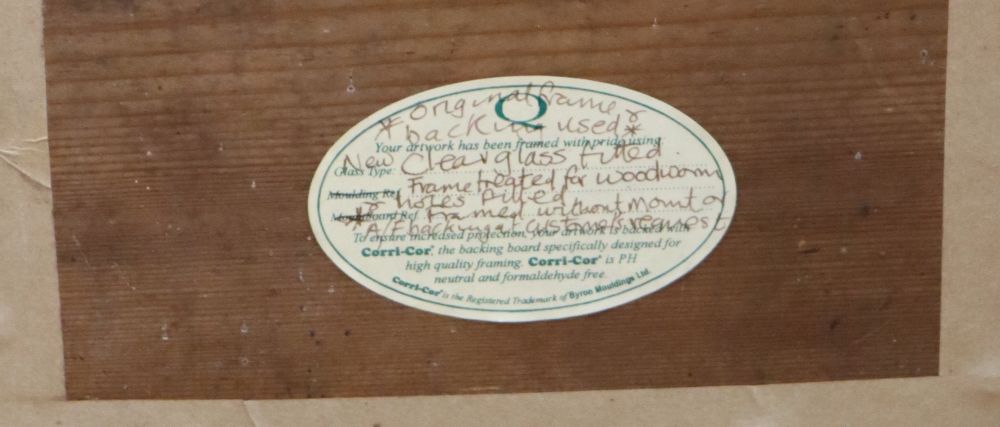 * original frame &
Q
backing used *
Your artwork has been framed with pride using:
New Clear glass fitted.
Glass Type:
Frame treated for woodworm
Moulding Ref.
& holes filled
Mountboard Ref.
* Framed without mount or
A/F backing at customer's request
To ensure increased protection, your artwork is backed with
Corri-Cor®, the backing board specifically designed for
high quality framing. Corri-Cor® is PH
neutral and formaldehyde free.
Corri-Cor® is the Registered Trademark of Byron Mouldings Ltd.